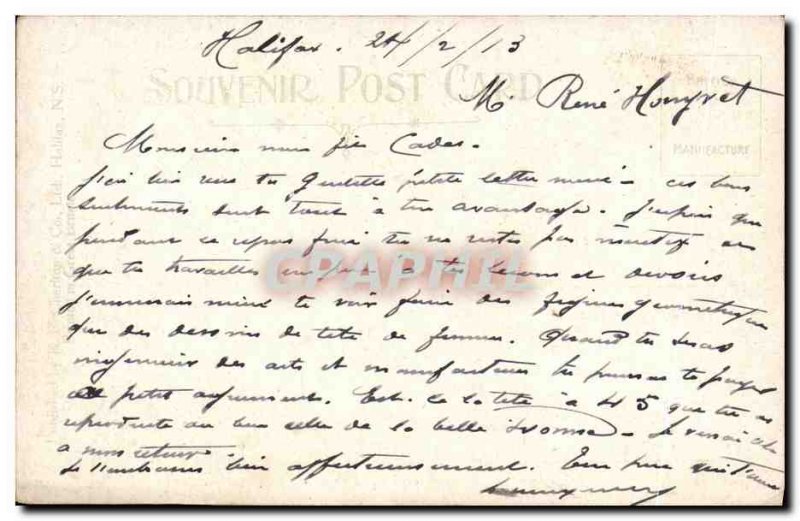 Halifax. 24/2/13
SOUVENIR POST CARD
M. René
MANUFACTURE
Monsieur mon fils Cadet.
J'ai bien reçu ta gentille petite lettre ces bons
sentiments sont tout à ton avantage. J'espère que
pendant ce repos tu ne restes pas inactif et
que tu travailles un peu à tes leçons et devoirs
J'aimerais mieux te voir faire des figures géométriques
que des dessins de tête de femme. Quand tu seras
ingénieur des arts et manufactures tu pourras te payer
ce petit agrément. Est-ce la tête à 45 que tu as
reproduite ou bien celle de la belle Yvonne. Je
à mon retour
Je t'embrasse bien affectueusement. Ton père qui t'aime
CPAPHIL
Halifax, N.S.